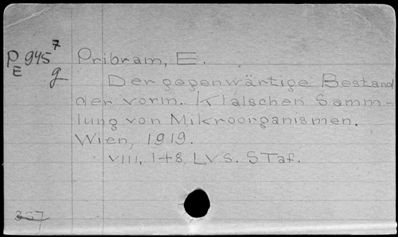 P 945 7 Pribram, E.
E g
Der gegenwärtige Bestand
der vorm. Kralschen Samm-
lung von Mikroorganismen.
Wien, 1919.
VIII, 148, LVS. 5 Taf.
357